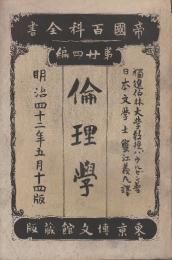 帝國百科全書
第廿四編
獨逸伯林大學教授パウルゼン著
日本文學士蟹江義丸譯
倫理學
明治四十二年五月十四版
東京博文館蔵版